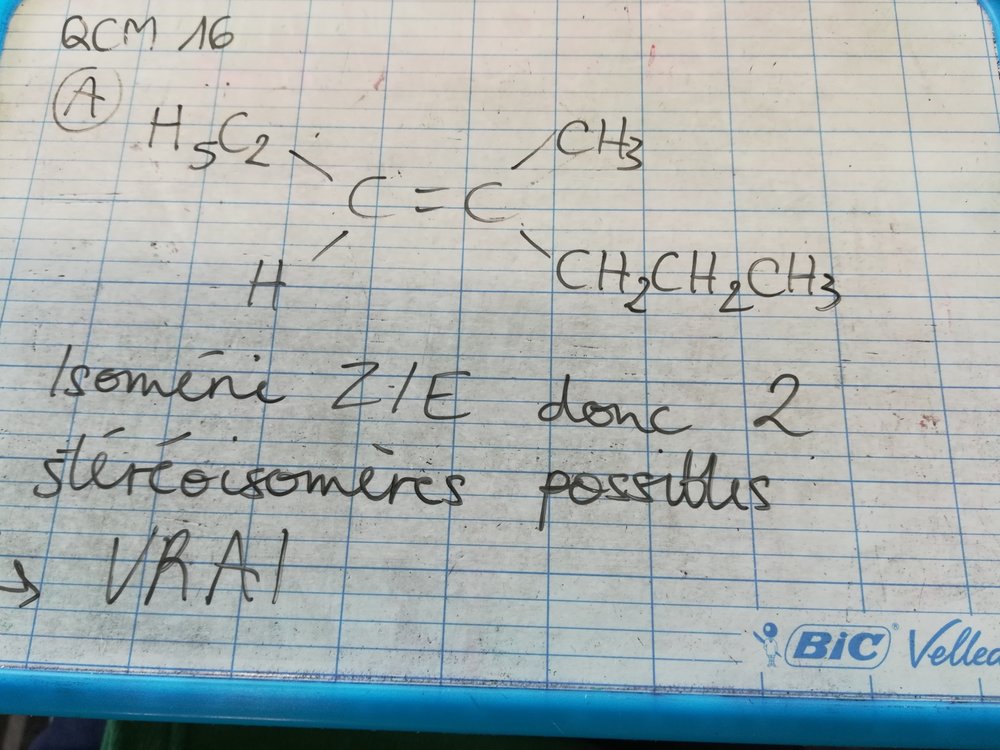 QCM 16
A
H5C2 CH3
C = C
H CH2CH2CH3
Isomérie Z/E donc 2
stéréoisomères possibles
→ VRAI
BiC® Velleda